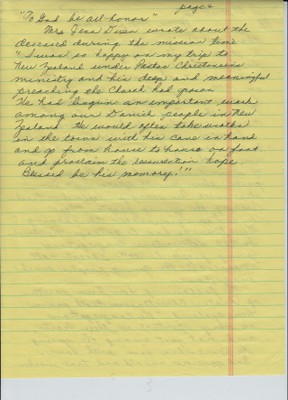 page 4
"To God be all honor"
Mrs Jess Dixen wrote about the
deceased during the mission time
"I was so happy on my trip to
New Zealand under Pastor Christensens
ministry and his deep and meaningful
preaching the Church had grown
He had begun an important work
among our Danish people in New
Zealand He would often take walks
in the town with his cane in hand
and go from house to house on foot
and proclaim the resurrection hope.
Blessed be his memory!"